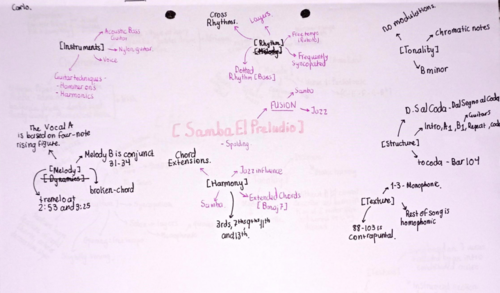 Carlo.
Acoustic Bass
Guitar
[Instruments]
Nylon guitar.
Voice
Guitar techniques -
- Hammer ons
- Harmonics
Cross
Rhythms.
Layers
[Rhythm]
[Melody]
Frequently
Syncopated
Dotted
Rhythm [Bass]
no modulations
chromatic notes
[Tonality]
B minor
Samba
FUSION
Jazz
[Samba El Preludio]
- Spalding
D.S al Coda. Dal Segno al Coda
Guitars
Intro, A1, B1, Repeat, coda
[Structure]
to coda - Bar 104
The Vocal A
is based on four-note
rising figure.
Melody B is conjunct
31-34
[Melody]
[Dynamics]
broken-chord
2:53 and 3:25
Chord
Extensions.
Jazz influence
[Harmony]
Extended Chords
Samba
3rds, 7ths 9ths 11ths
and 13th.
1-3 - Monophonic.
[Texture]
Rest of song is
homophonic
88-103 is
contrapuntal.